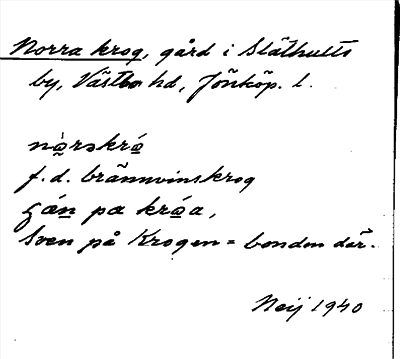 Norra krog, gård i Slätthults
by, Västbo hd, Jönköp. l.
nò̱rəkró̱
f.d. brännvinskrog
på króa,
Sven på Krogen = bonden där.
Neij 1940